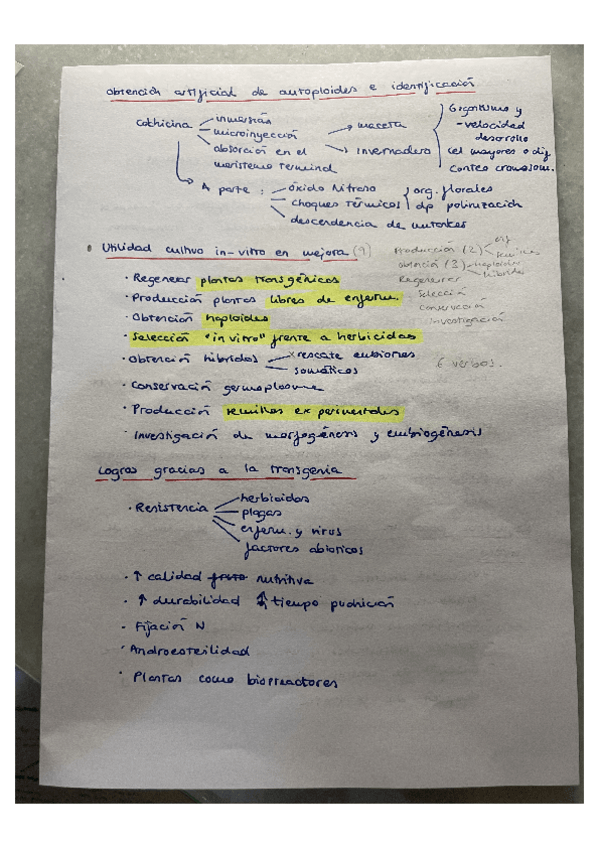 Obtención artificial de autoploides e identificación
Colhicina
inmersión
microinyección
absorción en el meristemo terminal
maceta
invernadero
Gigantismo y
- velocidad
desarrollo
cel mayores o dif
Conteo cromosom.
A parte :
óxido nitroso
choques térmicos
descendencia de mutantes
org. florales
dp polinización
Utilidad cultivo in-vitro en mejora (9)
· Regenerar plantas transgénicas
· Producción plantas libres de enferm.
· Obtención haploides
· Selección "in vitro" frente a herbicidas
· Obtención híbridos
rescate embiones
somáticos
· Conservación germoplasma
· Producción semillas experimentales
· Investigación de morfogénesis y embiogénesis
Producción (2)
enf
semillas
Obtención (3)
haploides
híbridos
Regenerar
Selección
Conservación
Investigación
6 verbos.
Logros gracias a la transgenia
· Resistencia
herbicidas
plagas
enferm. y virus
factores abioticos
· ↑ calidad nutritiva
· ↑ durabilidad tiempo pudrición
· Fijación N
· Androesterilidad
· Plantas como biorreactores